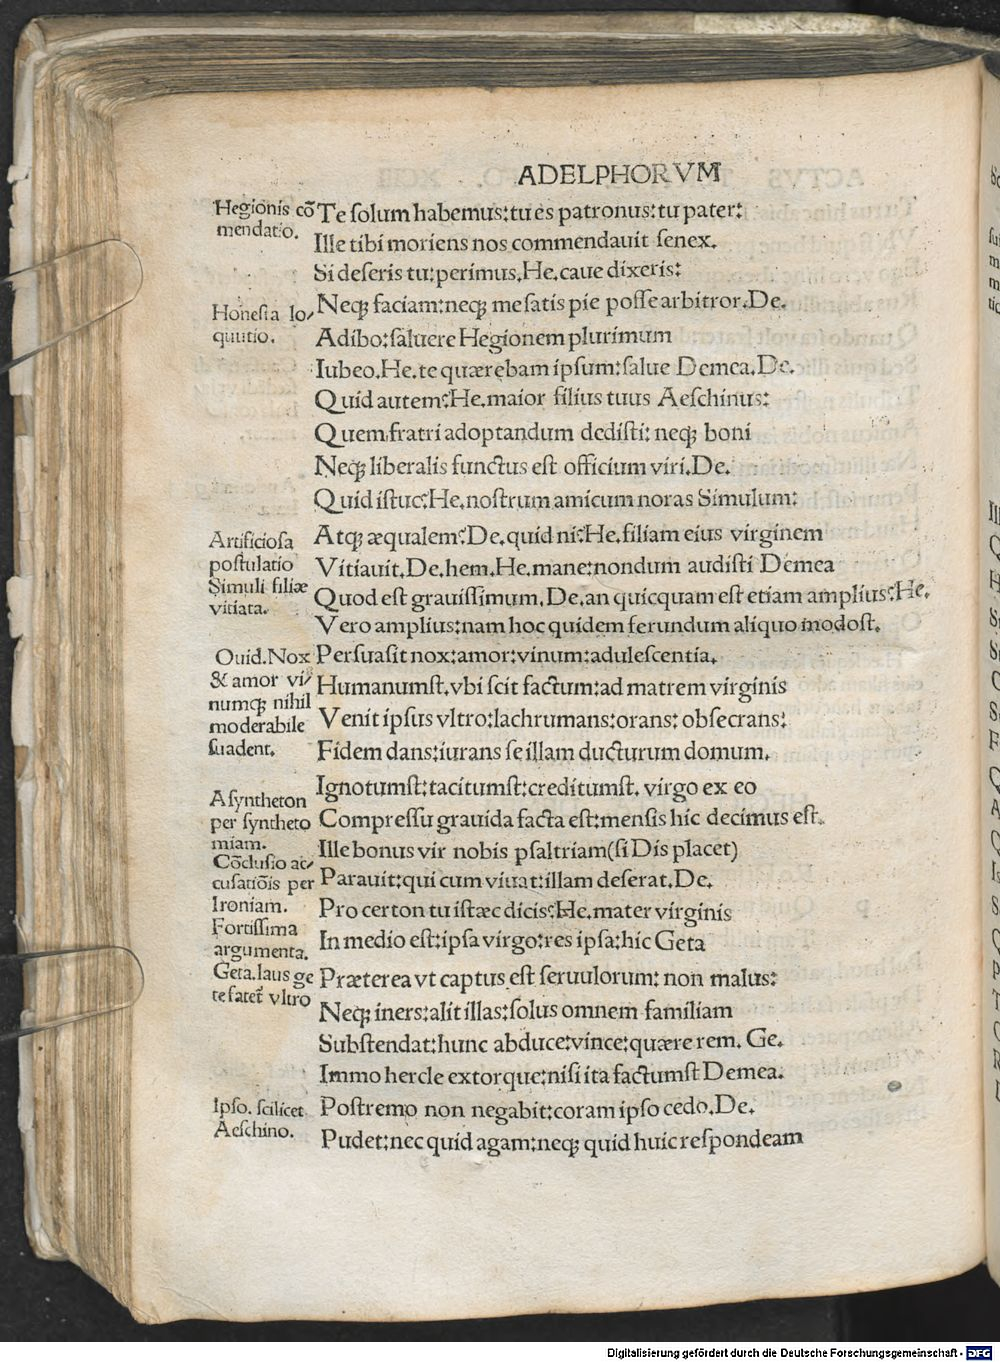 ADELPHORVM
Hegionis cō
mendatio.
Te ſolum habemus:tu es patronus:tu pater:
Ille tibi moriens nos commendauit ſenex.
Si deſeris tu:perimus.He.caue dixeris:
Honeſta lo/
quutio.
Neqꝫ faciam:neqꝫ me ſatis pie poſſe arbitror.De.
Adibo:ſaluere Hegionem plurimum
Iubeo.He.te quærebam ipſum:ſalue Demea.De.
Quid autem?He.maior filius tuus Aeſchinus:
Quem fratri adoptandum dediſti: neqꝫ boni
Neqꝫ liberalis functus eſt officium viri.De.
Quid iſtuc?He.noſtrum amicum noras Simulum:
Artificioſa
poſtulatio
Simuli filiæ
vitiata.
Atqꝫ æqualem?De.quid ni?He.filiam eius virginem
Vitiauit.De.hem.He.mane:nondum audiſti Demea
Quod eſt grauiſſimum.De.an quicquam eſt etiam amplius?He.
Vero amplius:nam hoc quidem ferundum aliquo modoſt.
Ouid.Nox
& amor vi/
numqꝫ nihil
moderabile
ſuadent.
Perſuaſit nox:amor:vinum:adulescentia.
Humanumſt.vbi ſcit factum:ad matrem virginis
Venit ipſus vltro:lachrumans:orans: obſecrans:
Fidem dans:iurans ſe illam ducturum domum.
Aſyntheton
per ſyntheto
miam.
Cōcluſio ac/
cuſatiōis per
Ironiam.
Fortiſſima
argumenta.
Geta.laus ge
te fateť vltro
Ignotumſt:tacitumſt:creditumſt. virgo ex eo
Compreſſu grauida facta eſt:menſis hic decimus eſt.
Ille bonus vir nobis pſaltriam(ſi Dis placet)
Parauit:qui cum viuat:illam deſerat.De.
Pro certon tu iſtæc dicis?He.mater virginis
In medio eſt:ipſa virgo:res ipſa:hic Geta
Præterea vt captus eſt ſeruulorum: non malus:
Neqꝫ iners:alit illas:ſolus omnem familiam
Subſtendat:hunc abduce:vince:quære rem. Ge.
Immo hercle extorque:niſi ita factumſt Demea.
Ipſo. ſcilicet
Aeſchino.
Poſtremo non negabit:coram ipſo cedo.De.
Pudet:nec quid agam:neqꝫ quid huic reſpondeam
Digitalisierung gefördert durch die Deutsche Forschungsgemeinschaft - DFG